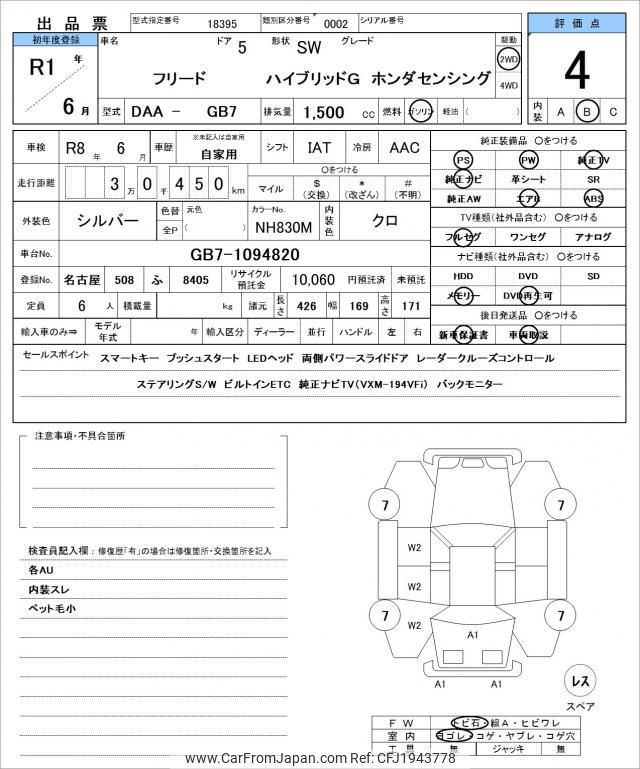 出品票 型式指定番号 18395 類別区分番号 0002 シリアル番号
初年度登録 車名 ドア 5 形状 SW グレード 駆動 評価点
R1 年 フリード ハイブリッドG ホンダセンシング 2WD 4
4WD
6 月 型式 DAA - GB7 排気量 1,500 cc 燃料 ガソリン 軽油 ( ) 内装 A B C
車検 R8 年 6 月 車歴 ※未記入は自家用 自家用 シフト IAT 冷房 AAC 純正装備品 〇をつける
PS PW 純正TV
走行距離 3 万 0 千 4 5 0 km 〇をつける マイル $ (交換) * (改ざん) # (不明)
純正ナビ 革シート SR
純正AW エアB ABS
外装色 シルバー 色替 元色 全P ( ) カラーNo. NH830M 内装色 クロ
TV種類(社外品含む) 〇をつける
フルセグ ワンセグ アナログ
車台No. GB7-1094820 ナビ種類(社外品含む) 〇をつける
登録No. 名古屋 508 ふ 8405 リサイクル預託金 10,060 円預託済 未預託 HDD DVD SD
定員 6 人 積載量 kg 諸元 長さ 426 幅 169 高さ 171 メモリー DVD再生可
後日発送品 〇をつける
輸入車のみ⇒ モデル年式 年 輸入区分 ディーラー 並行 ハンドル 左 右 新車保証書 車両取説
セールスポイント スマートキー プッシュスタート LEDヘッド 両側パワースライドドア レーダークルーズコントロール
ステアリングS/W ビルトインETC 純正ナビTV(VXM-194VFi) バックモニター
注意事項・不具合箇所
検査員記入欄:修復歴「有」の場合は修復箇所・交換箇所を記入
各AU
内装スレ
ペット毛小
7 7
W2
W2
7 W2 7
A1
A1 A1
レス
スペア
FW トビ石・線A・ヒビワレ
室内 ヨゴレ・コゲ・ヤブレ・コゲ穴
工具 無 ジャッキ 無
www.CarFromJapan.com Ref:CFJ1943778